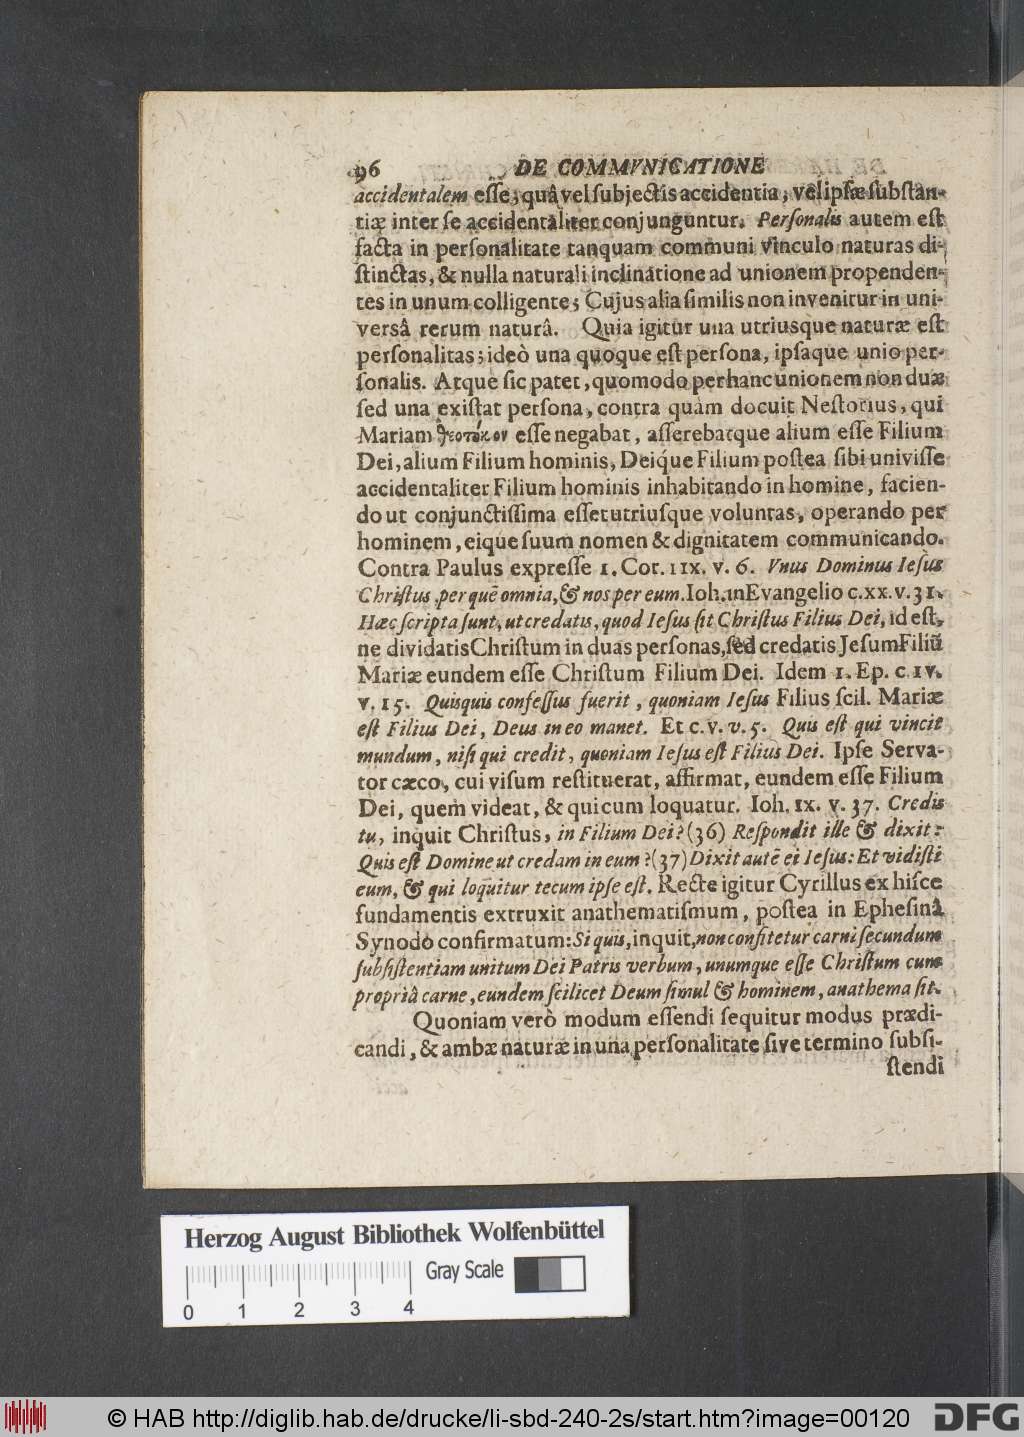 96 DE COMMVNICATIONE
accidentalem eſſe; quâ vel ſubjectis accidentia, vel ipſæ ſubſtan-
tiæ inter ſe accidentaliter conjunguntur. Perſonalis autem eſt
facta in perſonalitate tanquam communi vinculo naturas di-
ſtinctas, & nulla naturali inclinatione ad unionem propenden-
tes in unum colligente; Cujus alia ſimilis non invenitur in uni-
versâ rerum naturâ. Quia igitur una utriusque naturæ eſt
perſonalitas; ideò una quoque eſt perſona, ipſaque unio per-
ſonalis. Atque ſic patet, quomodo per hanc unionem non duæ
ſed una exiſtat perſona, contra quàm docuit Neſtorius, qui
Mariam θεοτόκον eſſe negabat, aſſerebatque alium eſſe Filium
Dei, alium Filium hominis, Deiq́ue Filium poſtea ſibi univiſſe
accidentaliter Filium hominis inhabitando in homine, facien-
do ut conjunctiſſima eſſet utriuſque voluntas, operando per
hominem, eique ſuum nomen & dignitatem communicando.
Contra Paulus expreſſe 1. Cor. IIX. v. 6. Vnus Dominus Ieſus
Chriſtus per quē omnia, & nos per eum. Ioh. in Evangelio c. xx. v. 31.
Hæc ſcripta ſunt, ut credatis, quod Ieſus ſit Chriſtus Filius Dei, id eſt,
ne dividatis Chriſtum in duas perſonas, ſed credatis Jeſum Filiū
Mariæ eundem eſſe Chriſtum Filium Dei. Idem 1. Ep. c IV.
v. 15. Quisquis confeſſus fuerit, quoniam Ieſus Filius ſcil. Mariæ
eſt Filius Dei, Deus in eo manet. Et c. v. v. 5. Quis eſt qui vincit
mundum, niſi qui credit, quoniam Ieſus eſt Filius Dei. Ipſe Serva-
tor cæco, cui viſum reſtituerat, affirmat, eundem eſſe Filium
Dei, quem videat, & quicum loquatur. Ioh. IX. v. 37. Credis
tu, inquit Chriſtus, in Filium Dei? (36) Reſpondit ille & dixit:
Quis eſt Domine ut credam in eum? (37) Dixit autē ei Ieſus: Et vidiſti
eum, & qui loquitur tecum ipſe eſt. Recte igitur Cyrillus ex hiſce
fundamentis extruxit anathematiſmum, poſtea in Ephesinâ
Synodo confirmatum: Si quis, inquit, non confitetur carni ſecundum
ſubſiſtentiam unitum Dei Patris verbum, unumque eſſe Chriſtum cum
propriâ carne, eundem ſcilicet Deum ſimul & hominem, anathema ſit.
Quoniam verò modum eſſendi ſequitur modus prædi-
candi, & ambæ naturæ in una perſonalitate ſive termino ſubſi-
ſtendi
Herzog August Bibliothek Wolfenbüttel
Gray Scale
0 1 2 3 4
© HAB http://diglib.hab.de/drucke/li-sbd-240-2s/start.htm?image=00120 DFG